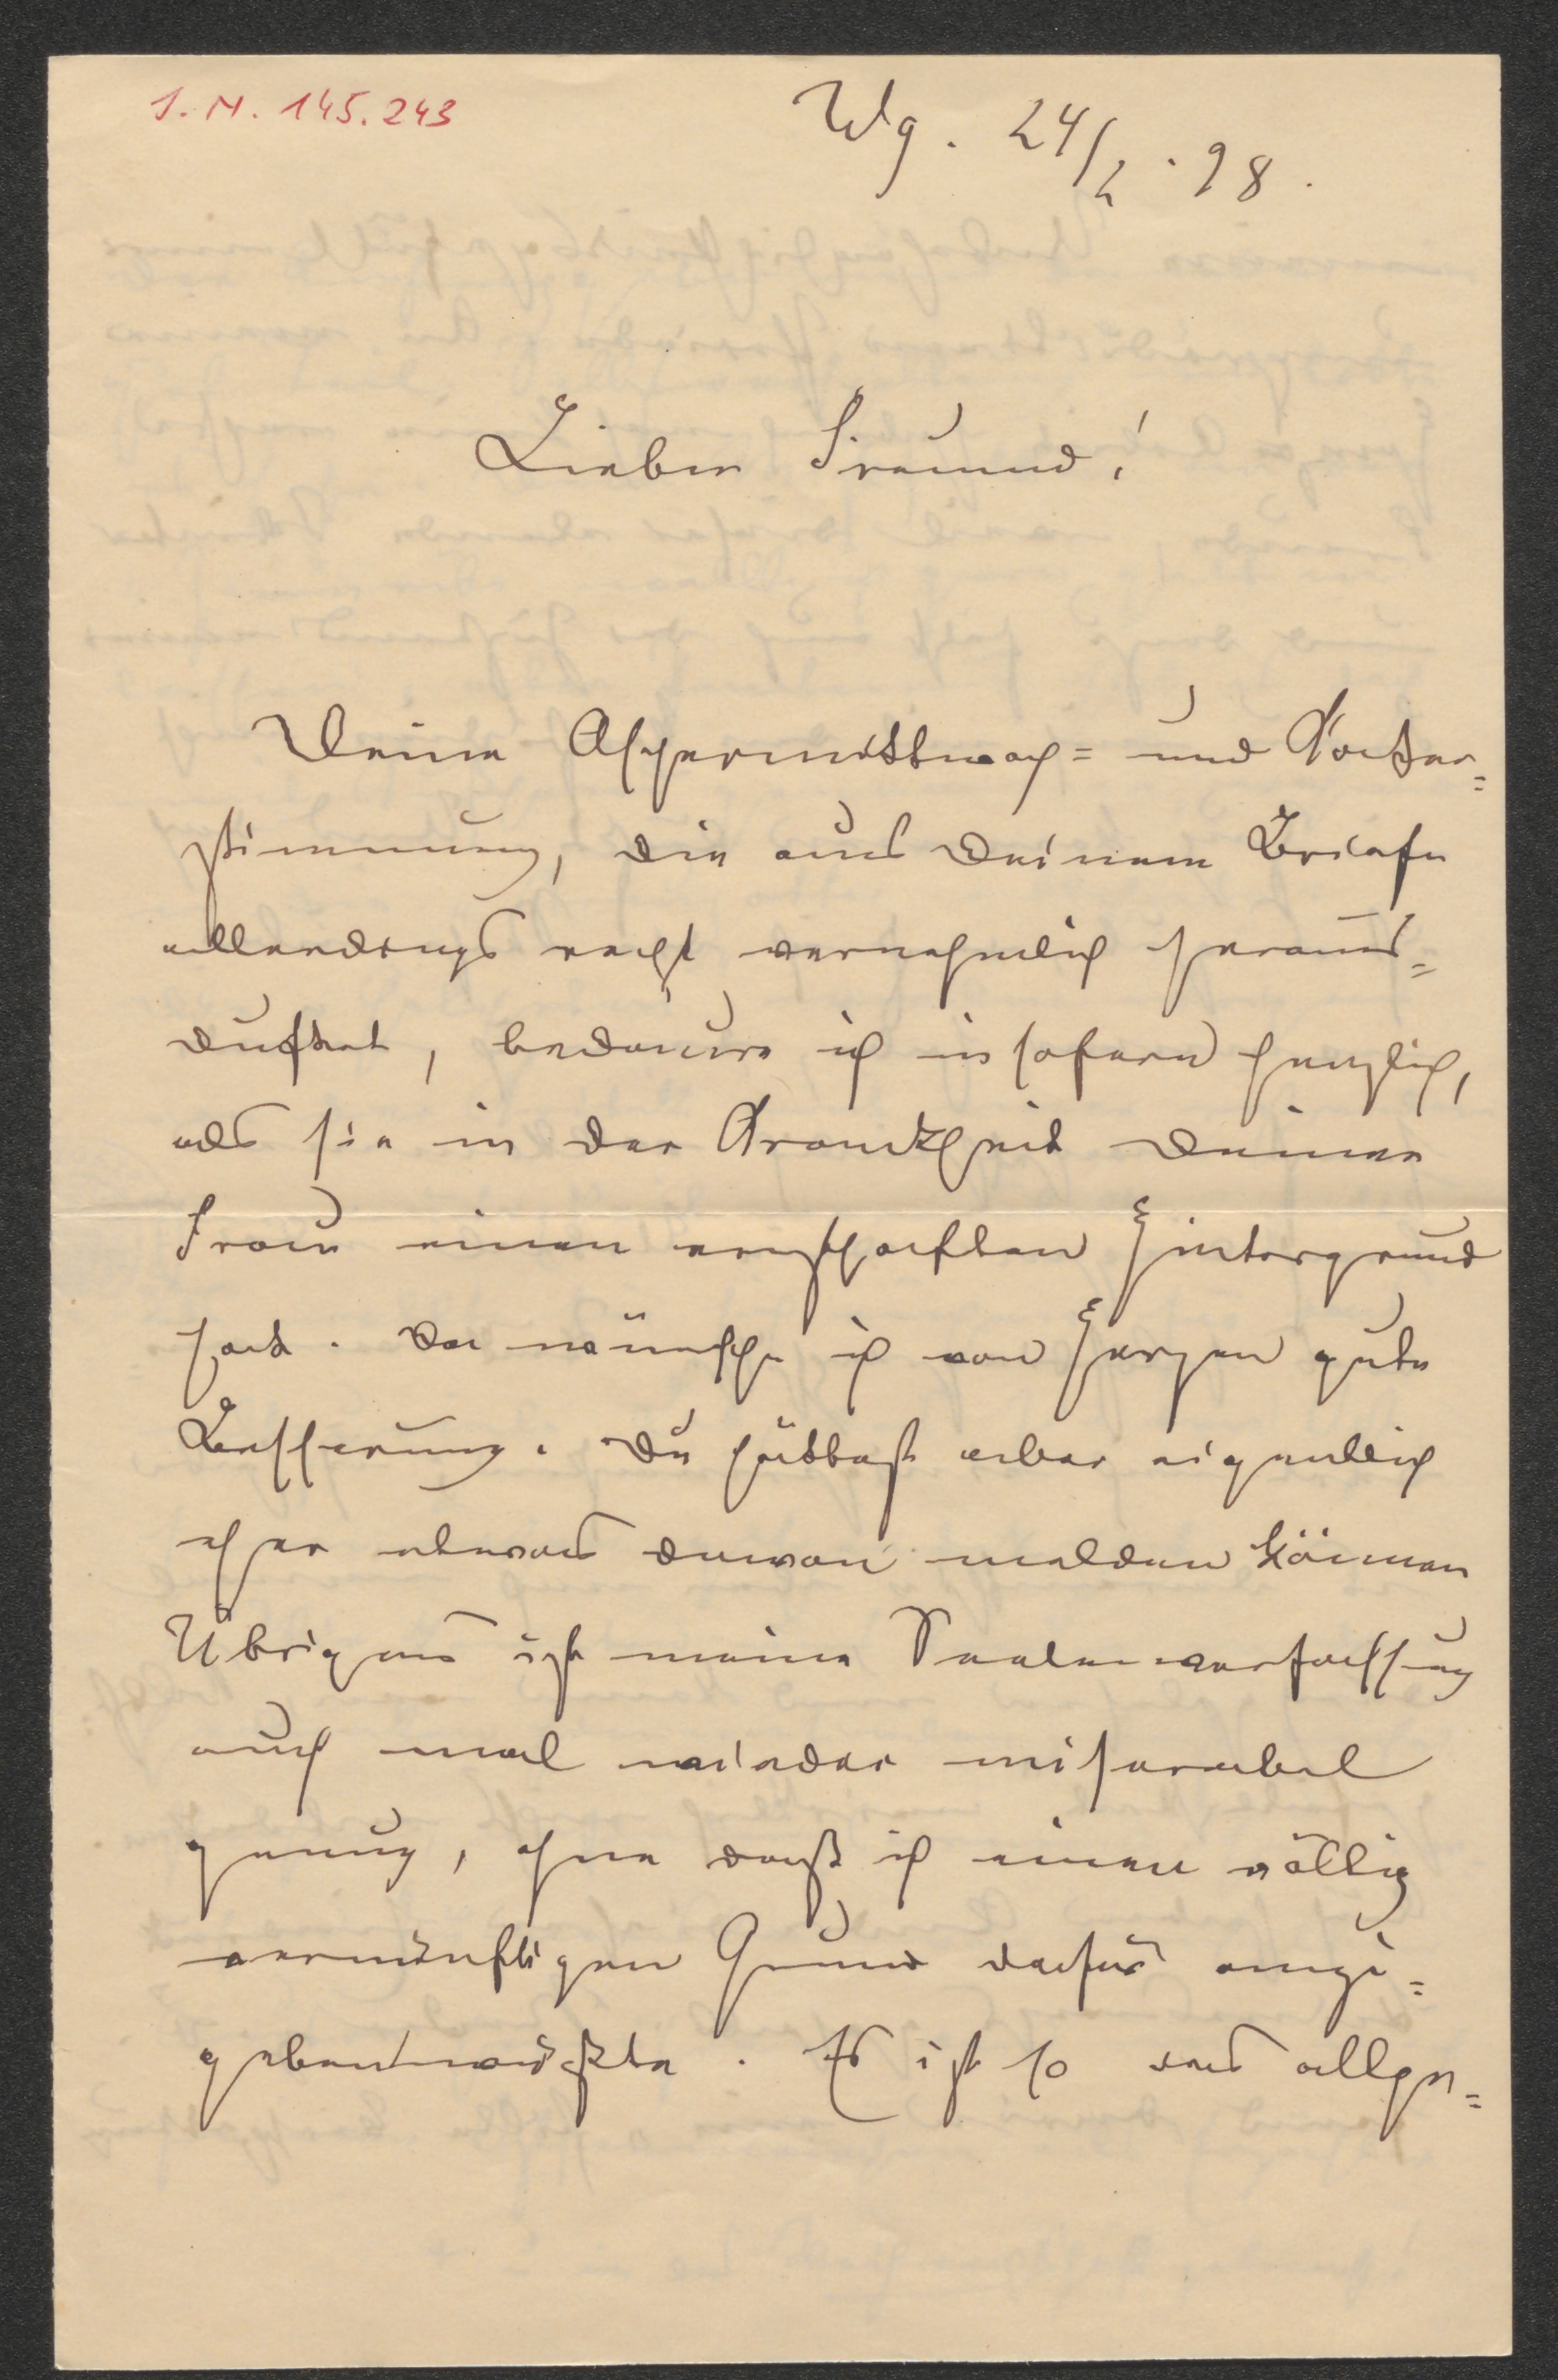 I. N. 145.243
Wg. 24/2. 98.
Lieber Freund!
Deine Aschermittwoch= und Kater=
stimmung, die aus Deinem Briefe
allerdings recht vernehmlich heraus=
duftet, bedaure ich insofern herzlich,
als sie in der Krankheit Deiner
Frau einen ernsthaften Hintergrund
hat. Da wünsche ich von Herzen gute
Besserung. Du hättest aber eigentlich
eher etwas davon melden können
Übrigens ist meine Seelenverfassung
auch mal wieder miserabel
genug, ohne daß ich einen völlig
vernünftigen Grund dafür anzu=
geben wüßte. Es ist so das allge=